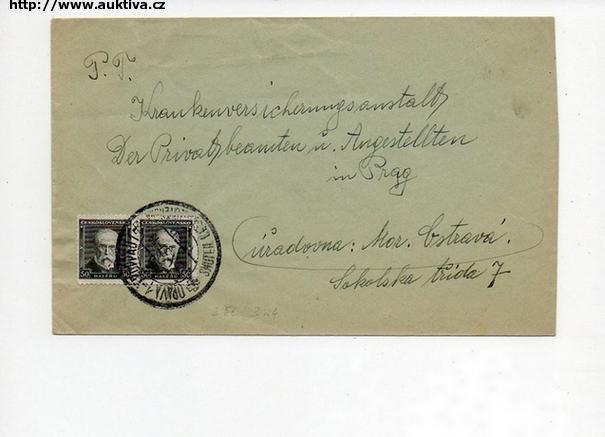 http://www.auktiva.cz
P. T.
Krankenversicherungsanstalt
Der Privatbeamten u. Angestellten
in Prag
úřadovna: Mor. Ostravá.
Sokolska třida 7
ČESKOSLOVENSKO ČESKOSLOVENSKO
50 50
HALÉŘŮ